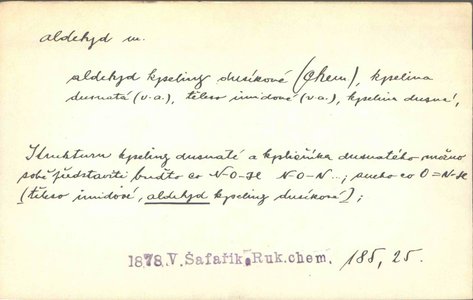 aldehyd m.
aldehyd kyseliny dusíkové (Chem), kyselina
dusnatá (v. a.), těleso imidové (v. a.), kyselina dusná,
Strukturu kyseliny dusnaté a kysličníka dusnatého možno
sobě představiti buďto co N-O-H N-O-N...; anebo co O=N-H
(těleso imidové, aldehyd kyseliny dusíkové);
1878.V.Šafařík.Ruk.chem. 185, 25.